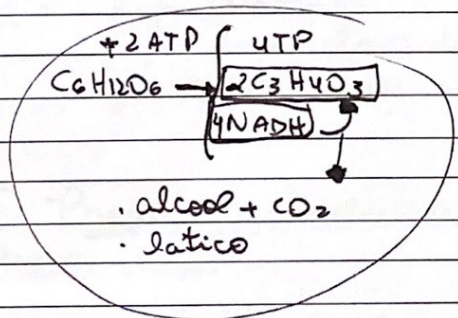 +2 ATP 4TP
C6H12O6 → 2C3H4O3
4NADH
. alcool + CO2
. latico